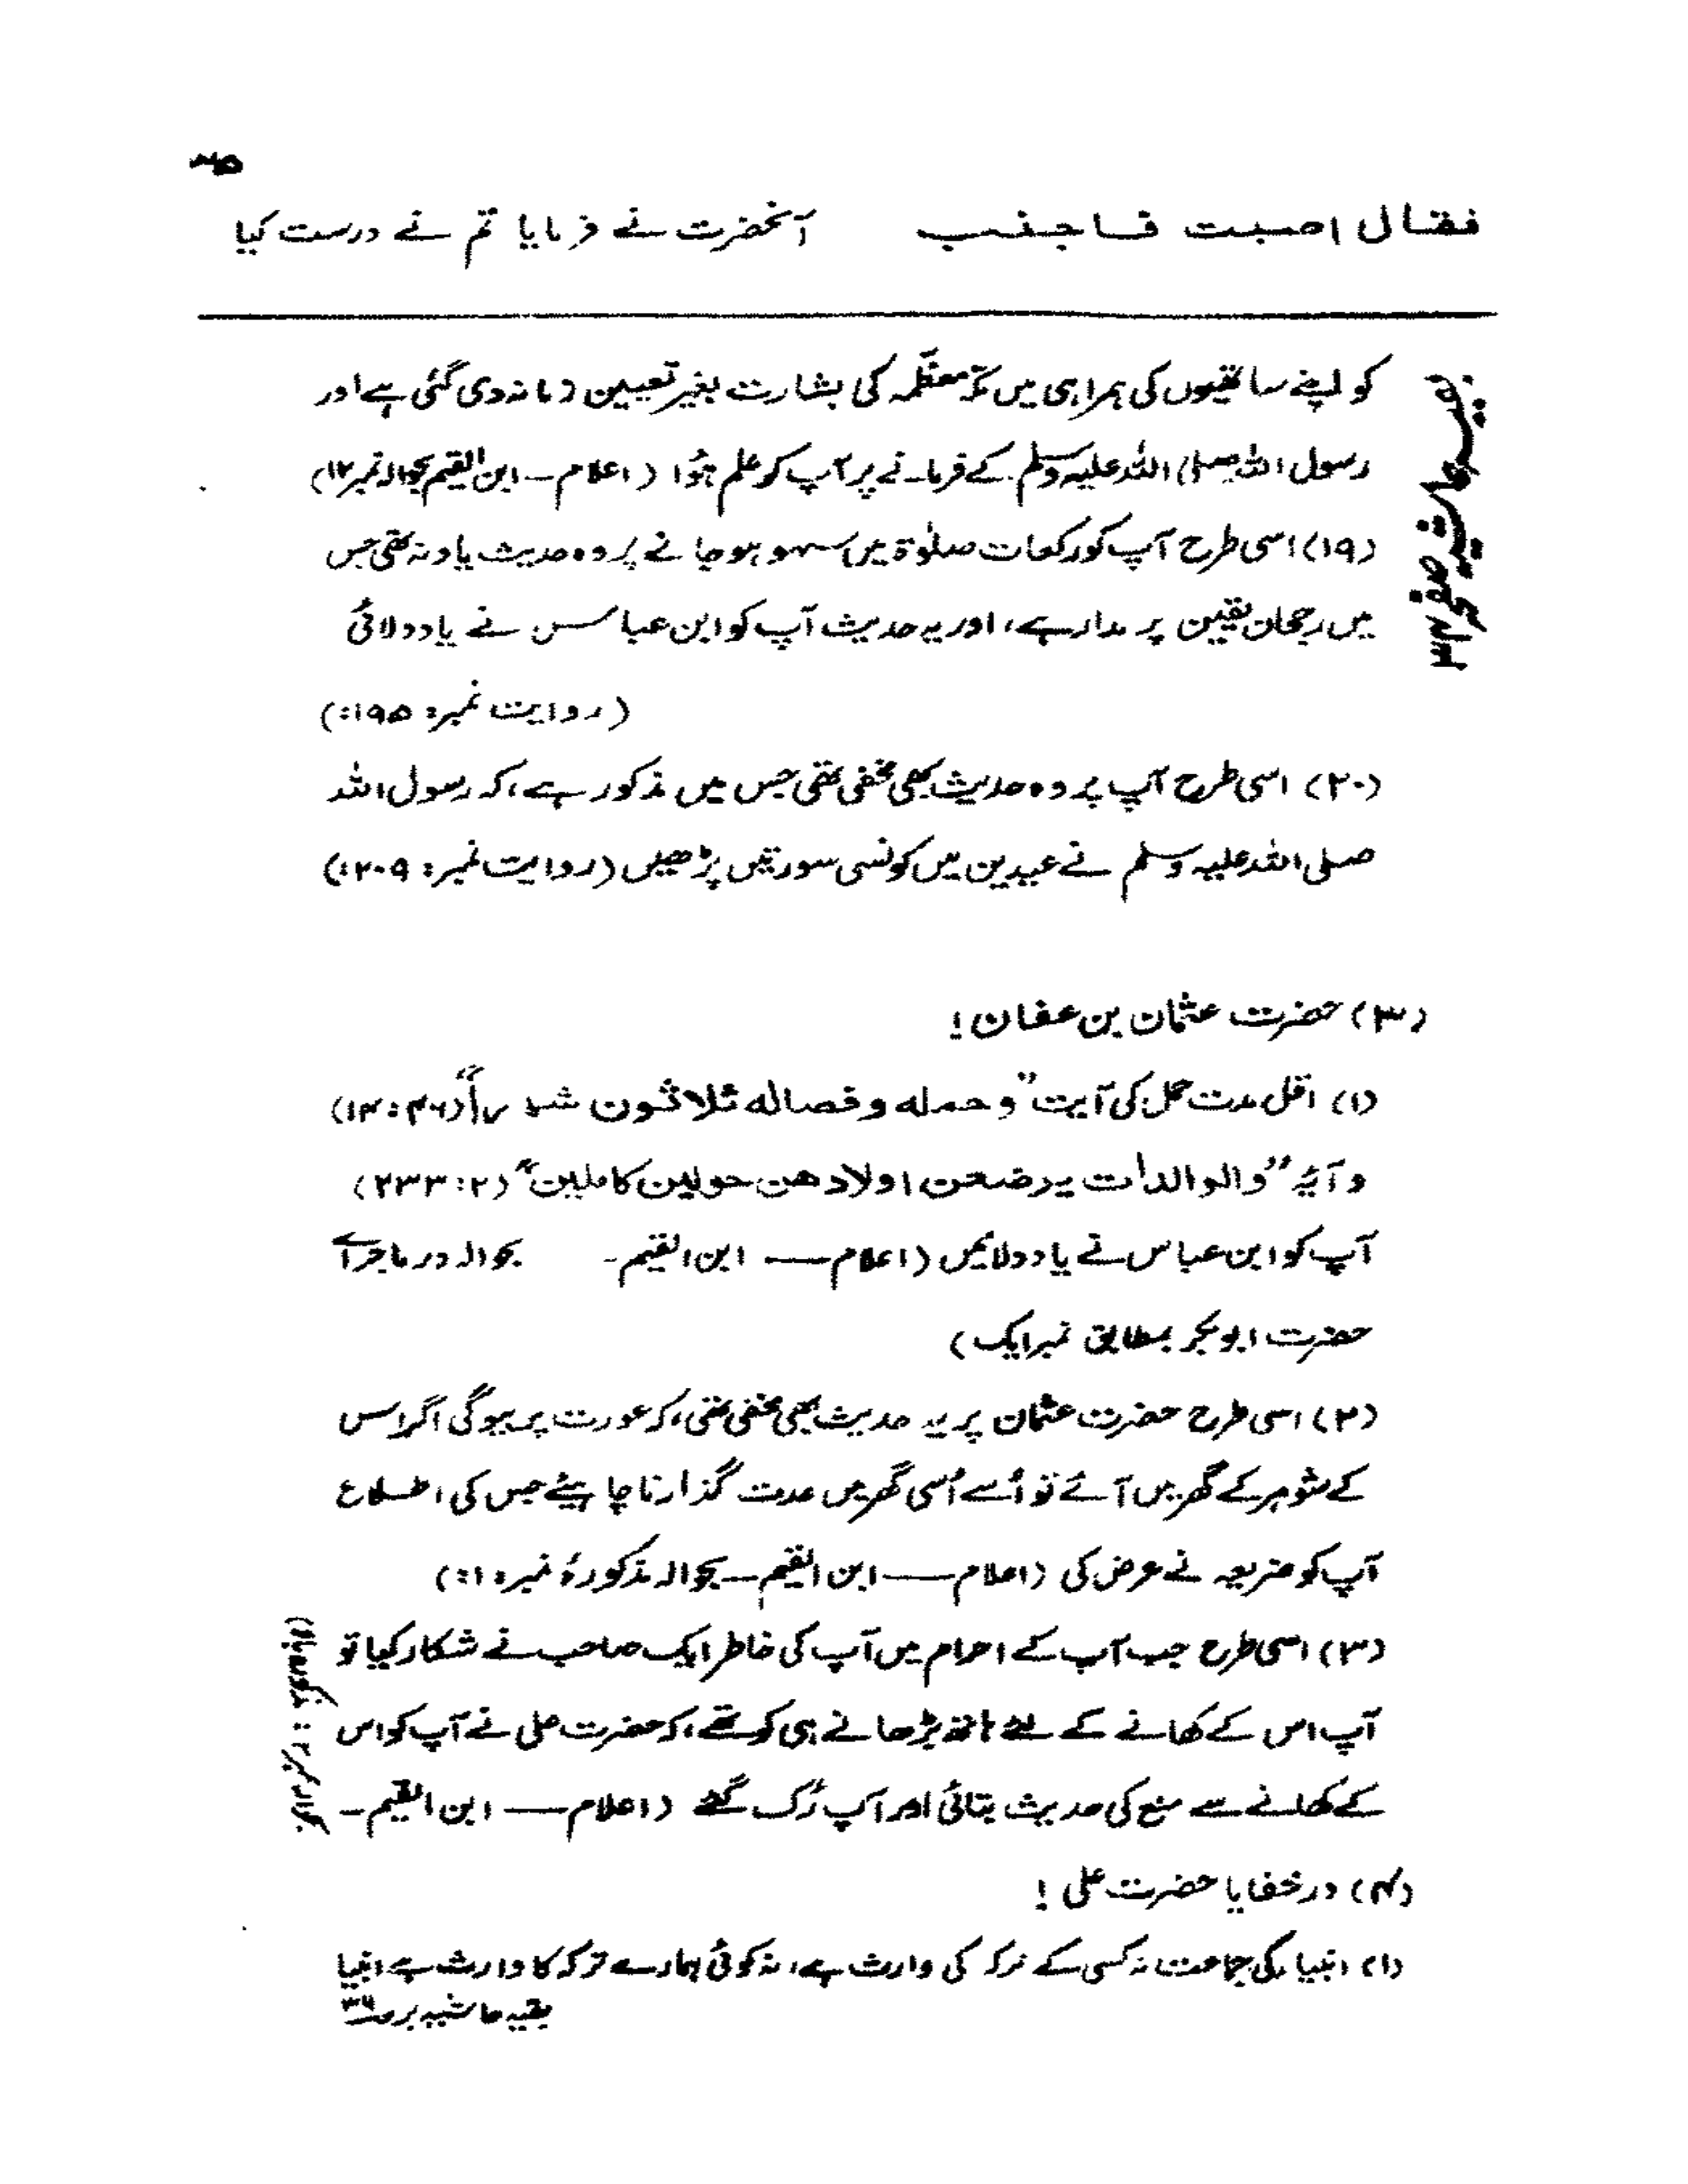 ۳۵
فقال اصبت فاجنب آنحضرت نے فرمایا تم نے درست کیا
بقیہ حاشیہ صفحہ ۳۴
کو اپنے ساتھیوں کی ہمراہی میں مکہ معظّمہ کی بشارت بغیر تعیین زمانہ دی گئی ہے اور
رسول اللہ صلی اللہ علیہ وسلم کے فرمانے پر آپ کو علم ہُوا (اعلام – ابن القیم بحوالہ نمبر ۱۷)
(۱۹) اسی طرح آپ کو رکعات صلوٰۃ میں سہو ہو جانے پر وہ حدیث یاد نہ تھی جس
میں رجحان یقین پر مدار ہے، اور یہ حدیث آپ کو ابن عباس نے یاد دلائی
(روایت نمبر: ۱۹۵:)
(۲۰) اسی طرح آپ پر وہ حدیث بھی مخفی تھی جس میں مذکور ہے، کہ رسول اللہ
صلی اللہ علیہ وسلم نے عیدین میں کونسی سورتیں پڑھیں (روایت نمبر: ۲۰۹:)
(۳) حضرت عثمان بن عفان!
(۱) اقل مدت حمل کی آیت "وحمله وفصاله ثلاثون شهراً" (۴۶: ۱۴)
و آیۂ "والوالدات یرضعن اولادهن حولین کاملین" (۲: ۲۳۳)
آپ کو ابن عباس نے یاد دلائیں (اعلام — ابن القیم - بحوالہ در ماجرائے
حضرت ابوبکر بمطابق نمبر ایک)
(۲) اسی طرح حضرت عثمان پر یہ حدیث بھی مخفی تھی، کہ عورت پر بیوگی اگر اس
کے شوہر کے گھر میں آئے تو اُسے اُسی گھر میں عدت گذارنا چاہیئے جس کی اطلاع
آپ کو فریعہ نے عرض کی (اعلام — ابن القیم – بحوالہ مذکورۂ نمبر: ۱:)
(۳) اسی طرح جب آپ کے احرام میں آپ کی خاطر ایک صاحب نے شکار کیا تو
آپ اس کے کھانے کے لئے ہاتھ بڑھانے ہی کو تھے، کہ حضرت علی نے آپ کو اس
کے کھانے سے منع کی حدیث بتائی اور آپ رُک گئے (اعلام — ابن القیم –
بحوالہ نمبر ۲: مذکور بالا)
(۴) در خفایا حضرت علی!
(۱) انبیاء کی جماعت نہ کسی کے ترکہ کی وارث ہے، نہ کوئی ہمارے ترکہ کا وارث ہے انبیا
بقیہ حاشیہ بر ص۳۶